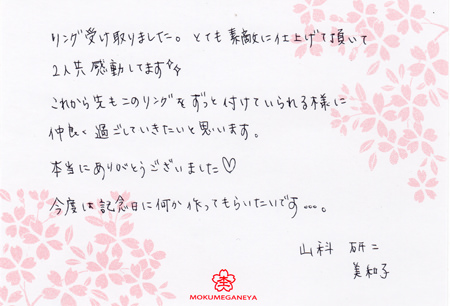 リング受け取りました。とても素敵に仕上げて頂いて
2人共感動してます✨
これから先もこのリングをずっと付けていられる様に
仲良く過ごしていきたいと思います。
本当にありがとうございました♡
今度は記念日に何か作ってもらいたいです…。
山科 研二
美和子
MOKUMEGANEYA